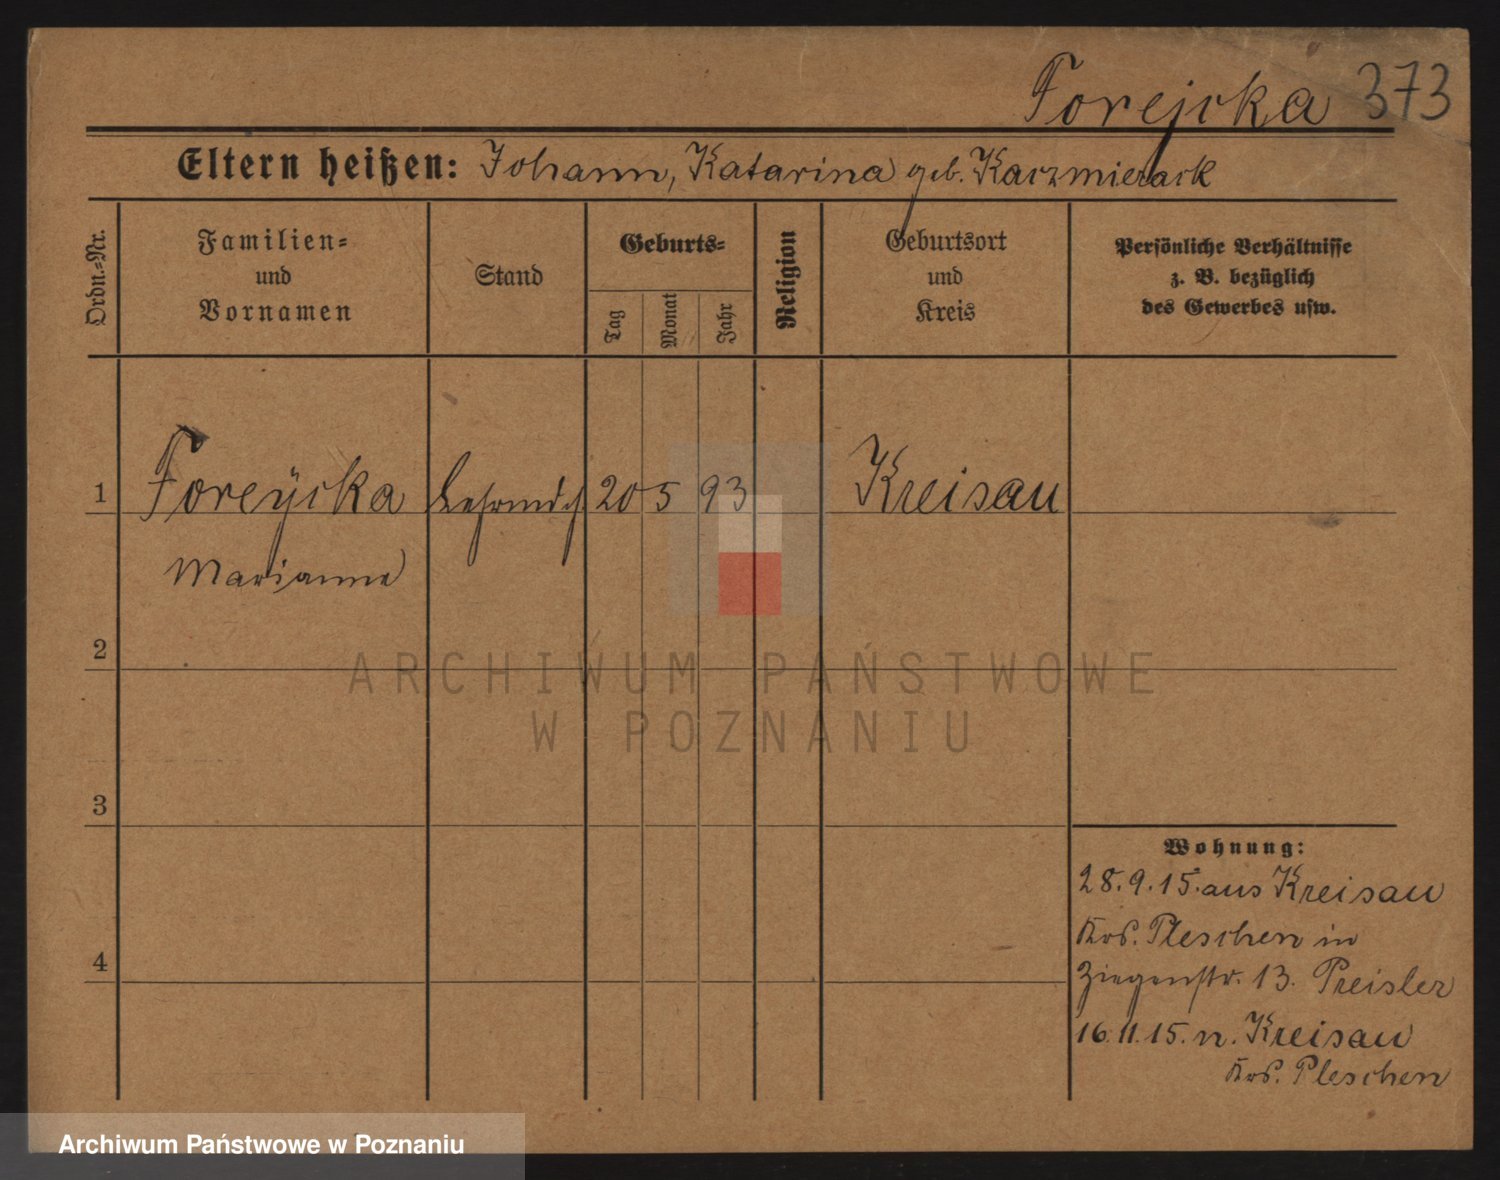 Forejcka 373
Eltern heißen: Johann, Katarina geb. Kaczmierack
Ordn.-Nr.
Familien-
und
Vornamen
Stand
Geburts-
Tag
Monat
Jahr
Religion
Geburtsort
und
Kreis
Persönliche Verhältnisse
z. B. bezüglich
des Gewerbes usw.
1 Foreÿcka 20 5 93 Kreisau
Marianna
2
3
4
Wohnung:
28.9.15. aus Kreisau
Krs. Pleschen in
Ziegenstr. 13. Preisler
16.11.15. n. Kreisau
Krs. Pleschen
ARCHIWUM PAŃSTWOWE
W POZNANIU
Archiwum Państwowe w Poznaniu